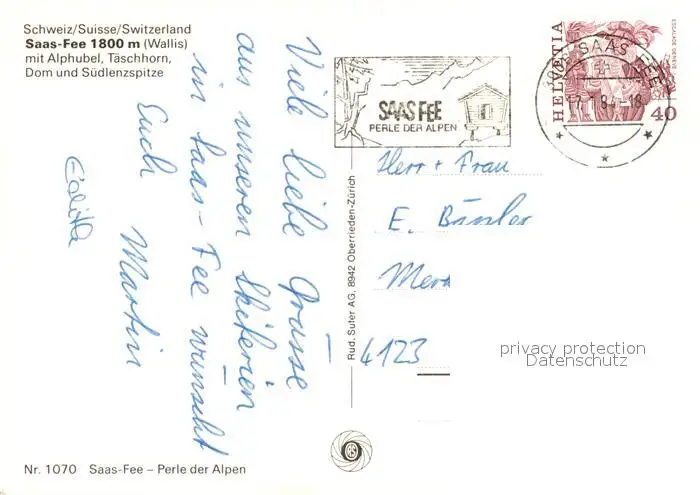 Schweiz/Suisse/Switzerland
Saas-Fee 1800 m (Wallis)
mit Alphubel, Täschhorn,
Dom und Südlenzspitze
Viele liebe Grüsse
aus unseren Skiferien
in Saas-Fee wünscht
Euch Martin
Edith
SAAS FEE
PERLE DER ALPEN
SAAS FEE
HELVETIA
ESCALADE GENÈVE
40
Herr + Frau
E.
4123
privacy protection
Datenschutz
Rud. Suter AG, 8942 Oberrieden-Zürich
Nr. 1070 Saas-Fee – Perle der Alpen